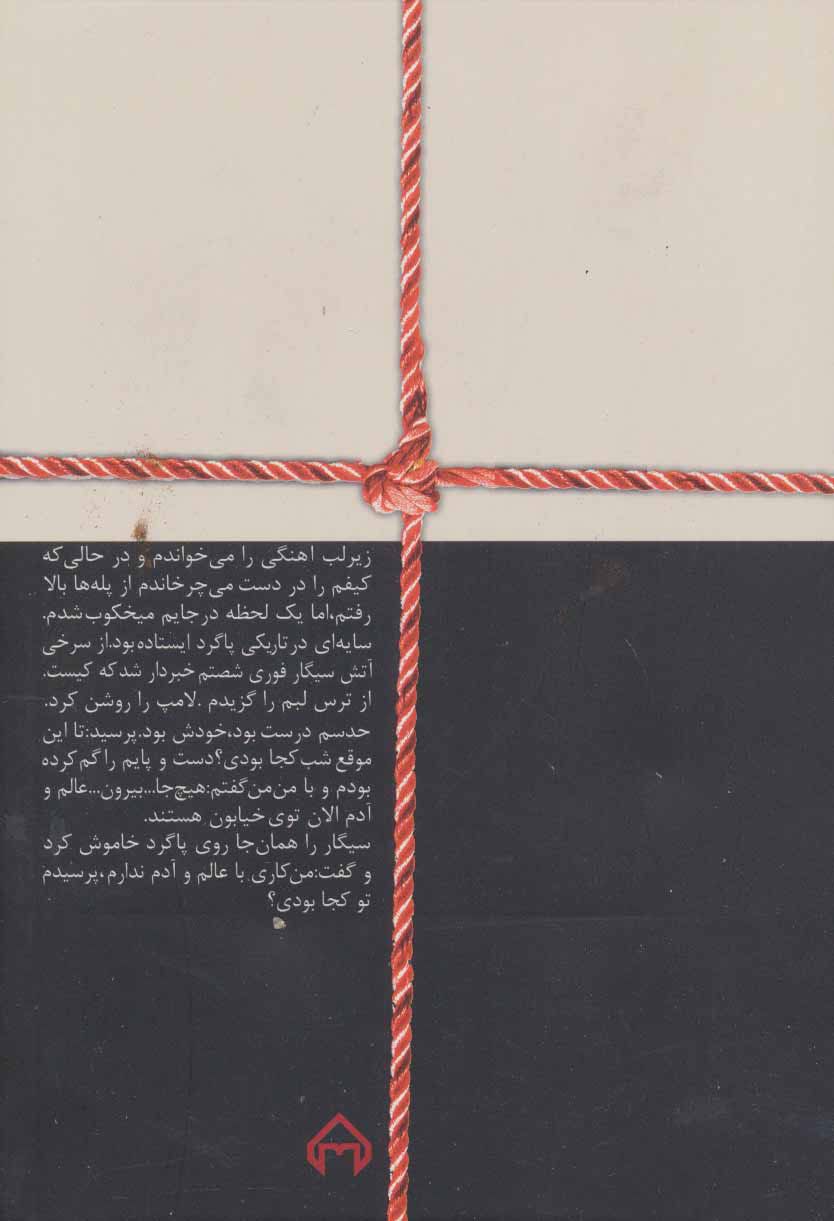 زیرلب اهنگی را می‌خواندم و در حالی‌که
کیفم را در دست می‌چرخاندم از پله‌ها بالا
رفتم،اما یک لحظه درجایم میخکوب‌شدم.
سایه‌ای درتاریکی پاگرد ایستاده‌بود.از سرخی
آتش سیگار فوری شصتم خبردار شدکه کیست.
از ترس لبم را گزیدم .لامپ را روشن کرد.
حدسم درست بود،خودش بود.پرسید:تا این
موقع شب‌کجا بودی؟دست و پایم راگم‌کرده
بودم و با من‌من‌گفتم:هیچ‌جا...بیرون...عالم و
آدم الان توی‌خیابون هستند.
سیگار را همان‌جا روی پاگرد خاموش کرد
و گفت:من‌کاری با عالم و آدم ندارم،پرسیدم
تو کجا بودی؟